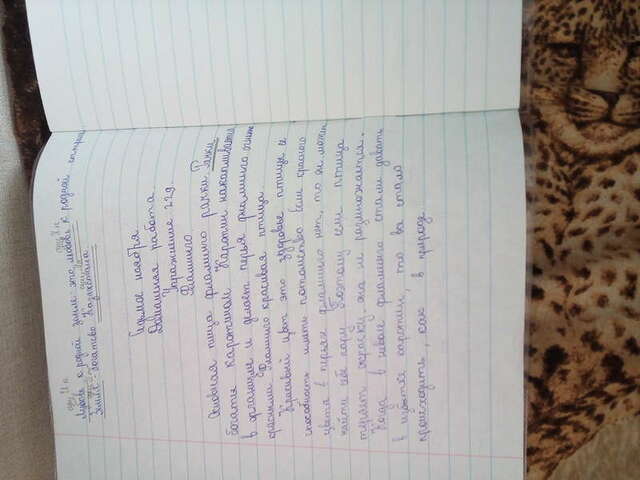 сущ. И.п. сущ. И.п.
Любовь к родной земле это любовь к родной стране
Земля - богатство Казахстана
Седьмое ноября.
Домашняя работа
Упражнение 229.
Фламинго
Основная пища фламинго рачки. Рачки
богаты каротином. Каротин накапливается
в организме и делает перья фламинго огненно
красными. Фламинго красивая птица.
Красивый цвет это здоровье птицы ее
способность иметь потомство Если красного
цвета в перьях фламинго нет, то он не может
найти себе пару Поэтому если птица
теряет окраску она не размножается.
Когда в неволе фламинго стали давать
в избытке каротин, то все стало
происходить, как в природе